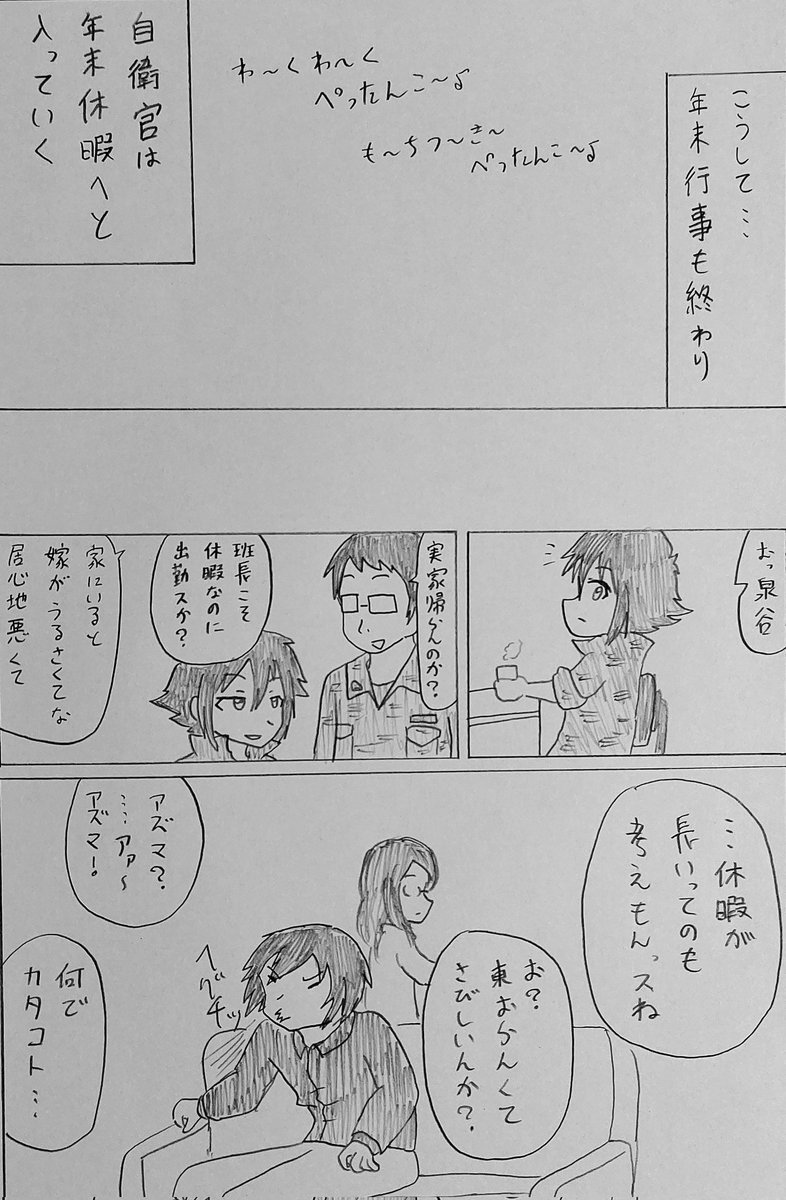 こうして…
年末行事も終わり
わ〜くわ〜く
ぺったんこ〜♪
も〜ちつ〜き〜
ぺったんこ〜♪
自衛官は
年末休暇へと
入っていく
おっ泉谷
実家帰らんのか?
班長こそ
休暇なのに
出勤スか?
家にいると
嫁がうるさくてな
居心地悪くて
…休暇が
長いってのも
考えもんっスね
お?
東おらんくて
さびしいんか?
ヘグチッ
アズマ?
…アァ〜
アズマー。
何で
カタコト…